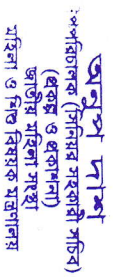 অনুপম দাশ
উপপরিচালক (সিনিয়র সহকারী সচিব)
(প্রকল্প ও প্রকাশনা)
জাতীয় মহিলা সংস্থা
মহিলা ও শিশু বিষয়ক মন্ত্রণালয়